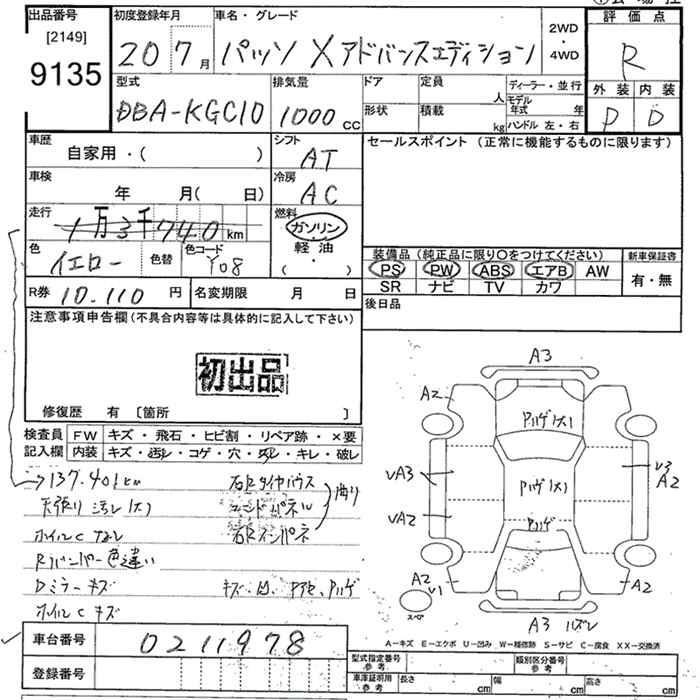 出品番号
[2149]
9135
初度登録年月
20 7月
車名・グレード
パッソ X アドバンスエディション
2WD
・
4WD
評価点
R
外装 内装
D D
型式
DBA-KGC10
排気量
1000 cc
ドア
定員
人
形状
積載
kg
ディーラー・並行
モデル年式 年
ハンドル 左・右
車歴
自家用・( )
シフト
AT
セールスポイント (正常に機能するものに限ります)
車検
年 月( 日)
冷房
AC
走行
1万3千740km
燃料
ガソリン
軽油
( ・ )
色
イエロー
色替
色コード
Y08
装備品 (純正品に限り○をつけてください)
新車保証書
PS PW ABS エアB AW
有・無
SR ナビ TV カワ
R券 10.110 円
名変期限 月 日
後日品
注意事項申告欄 (不具合内容等は具体的に記入して下さい)
初出品
修復歴 有 [箇所 ]
検査員 FW キズ・飛石・ヒビ割・リペア跡・×要
記入欄 内装 キズ・汚レ・コゲ・穴・欠レ・キレ・破レ
137.401km
天張り 汚レ(大)
ホイルC なし
Rバンパー色違い
Dミラーキズ
ホイルC キズ
右Rタイヤハウス
エンドパネル
右Rインパネ
曲り
キズ、凹、アセ、ハゲ
A3
A2
ハゲ(大)
ハゲ(大)
ハゲ
VA3
VA2
V3
A2
A2
V1
スペア
A2
A3 ハズレ
車台番号 0211978
登録番号
A－キズ E－エクボ U－凹み W－補修跡 S－サビ C－腐食 XX－交換済
型式指定番号
参考
類別区分番号
参考
車庫証明用
参考
長さ cm 幅 cm 高さ cm